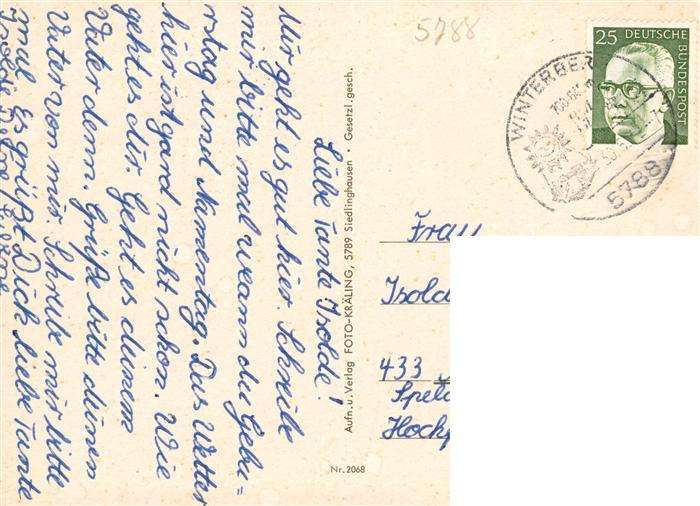 Liebe Tante Isolde!
Mir geht es gut hier. Schreibe
mir bitte mal wann du Gebu=
rstag und Namentag. Das Wetter
hier ist gard nicht schön. Wie
geht es dir. Geht es deinem
Vater denn Grüße bitte deinen
Vater von mir Schreibe mir bitte
mal Es grüßt Dich liebe Tante
Isolde
5788
25 DEUTSCHE
BUNDESPOST
WINTERBER
5788
Aufn. u. Verlag FOTO-KRÄLING, 5789 Siedlinghausen · Gesetzl. gesch.
Nr. 2068
Frau
Isold
433
Speld
Hochf